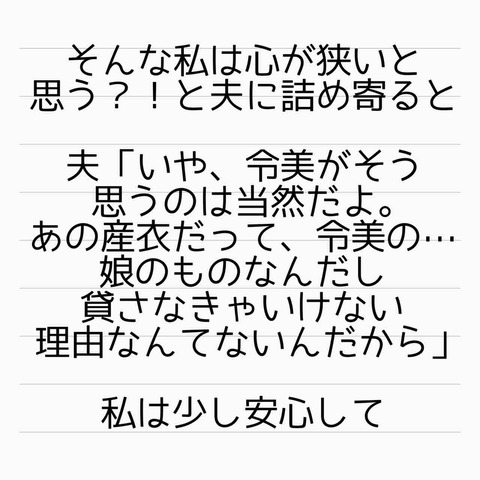 そんな私は心が狭いと
思う？！と夫に詰め寄ると
夫「いや、令美がそう
思うのは当然だよ。
あの産衣だって、令美の…
娘のものなんだし
貸さなきゃいけない
理由なんてないんだから」
私は少し安心して